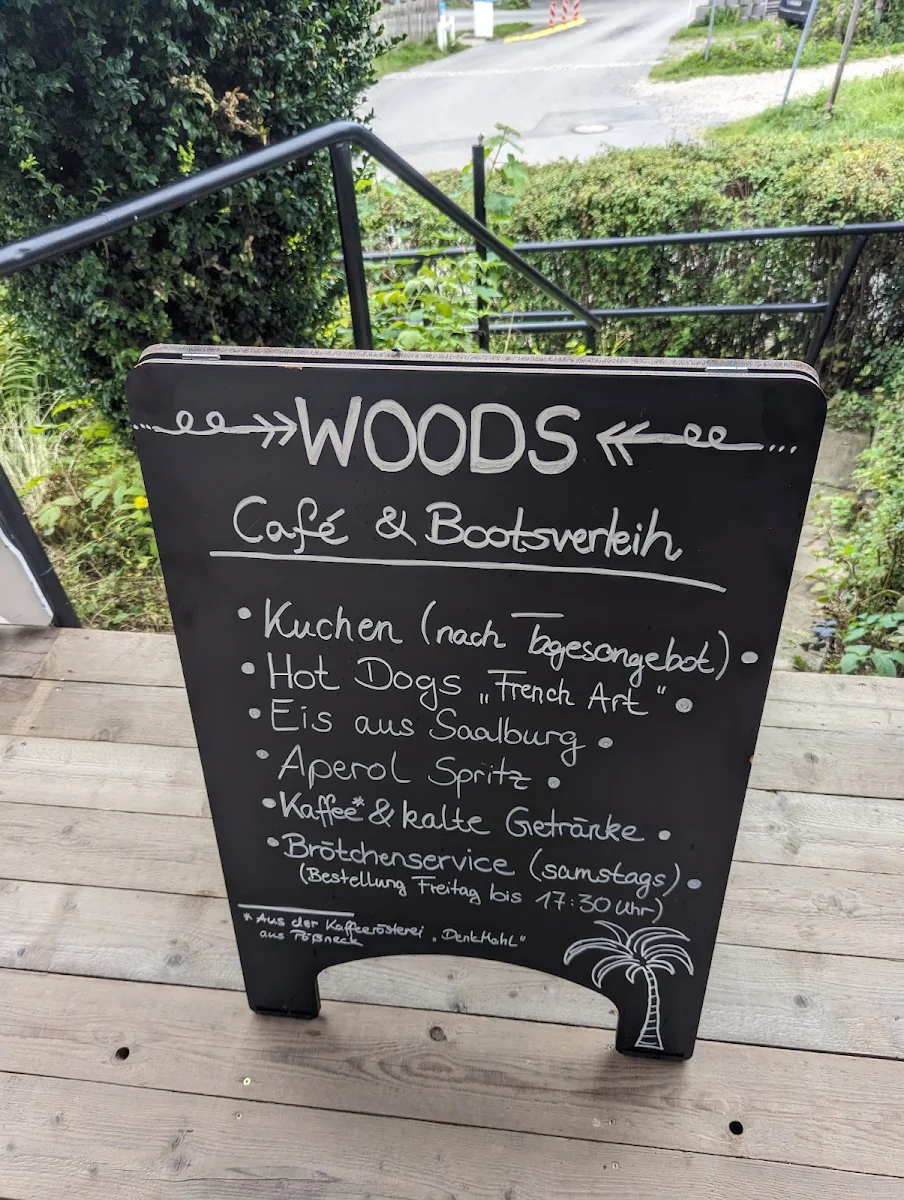 WOODS
Café & Bootsverleih
• Kuchen (nach Tagesangebot) •
• Hot Dogs „French Art“ •
• Eis aus Saalburg •
• Aperol Spritz •
• Kaffee* & kalte Getränke •
• Brötchenservice (samstags) •
(Bestellung Freitag bis 17:30 Uhr)
* Aus der Kaffeerösterei „DenkMahL“
aus Pößneck